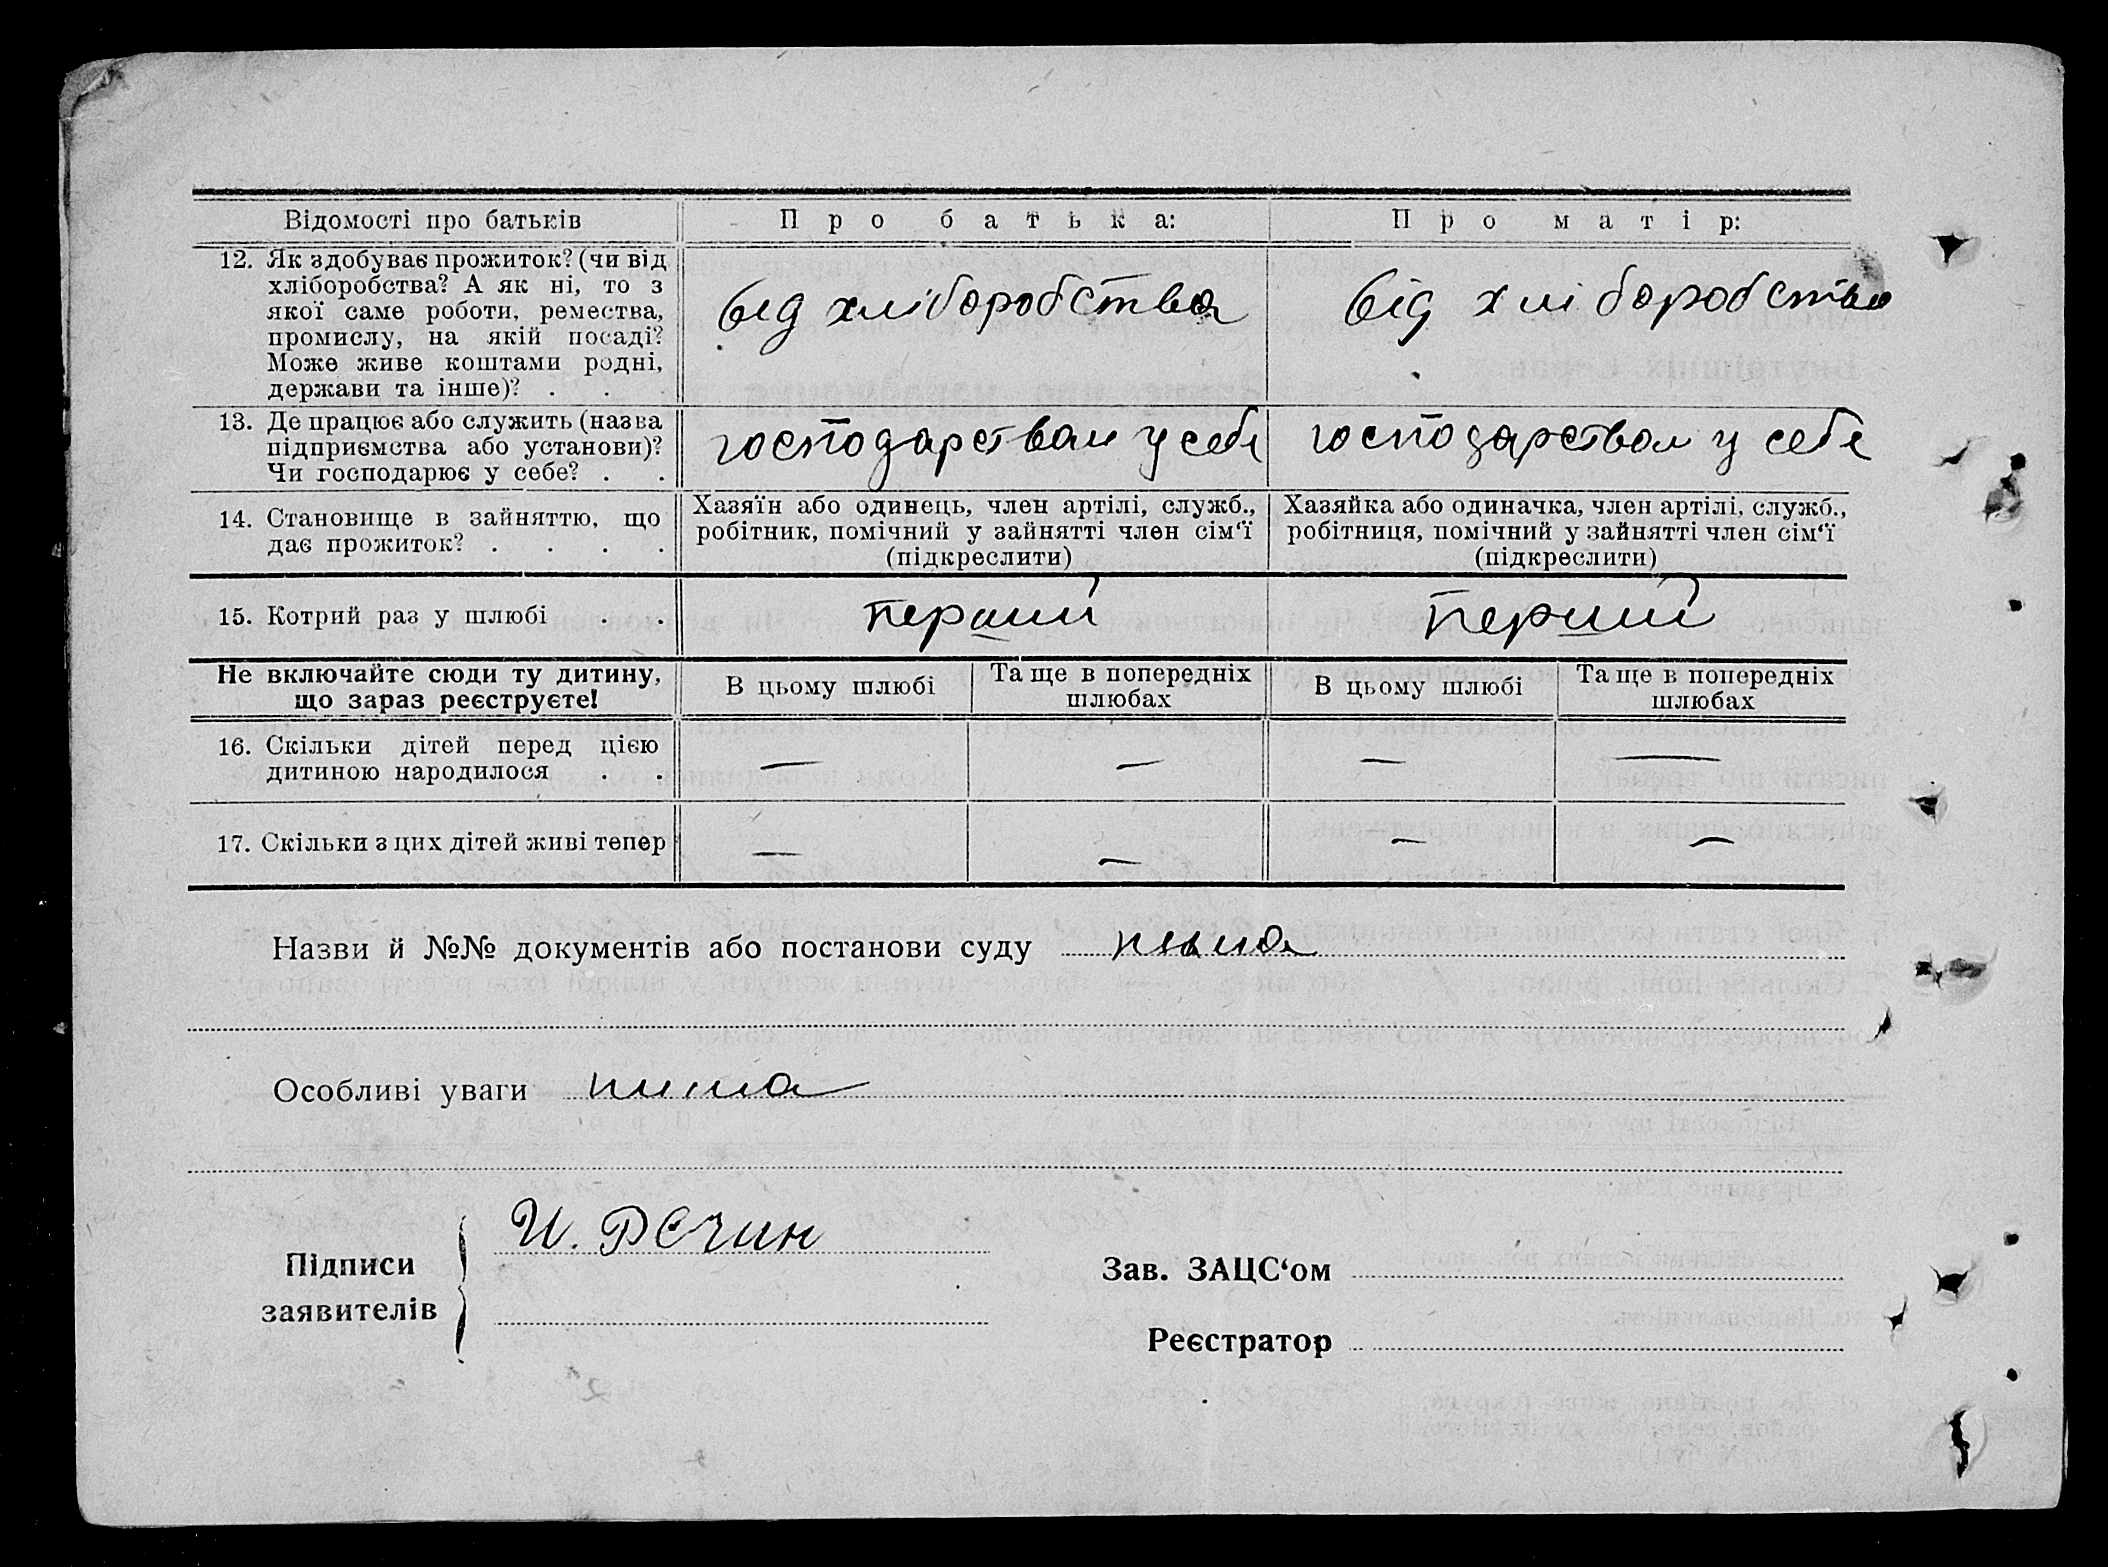 Відомості про батьків Про батька: Про матір:
12. Як здобуває прожиток? (чи від
хліборобства? А як ні, то з
якої саме роботи, ремества,
промислу, на якій посаді?
Може живе коштами родні,
держави та інше)? . .
від хліборобства
від хліборобства
13. Де працює або служить (назва
підприємства або установи)?
Чи господарює у себе? . .
господарством у себе
господарством у себе
14. Становище в зайняттю, що
дає прожиток? . . . .
Хазяїн або одинець, член артілі, служб.,
робітник, помічний у зайнятті член сім‘ї
(підкреслити)
Хазяйка або одиначка, член артілі, служб.,
робітниця, помічний у зайнятті член сім‘ї
(підкреслити)
15. Котрий раз у шлюбі . .
перший
перший
Не включайте сюди ту дитину,
що зараз реєструєте!
В цьому шлюбі
Та ще в попередніх
шлюбах
В цьому шлюбі
Та ще в попередніх
шлюбах
16. Скільки дітей перед цією
дитиною народилося . .
— — — —
17. Скільки з цих дітей живі тепер
— — — —
Назви й №№ документів або постанови суду
Особливі уваги
Підписи
заявителів
И. Речин
Зав. ЗАЦС‘ом
Реєстратор